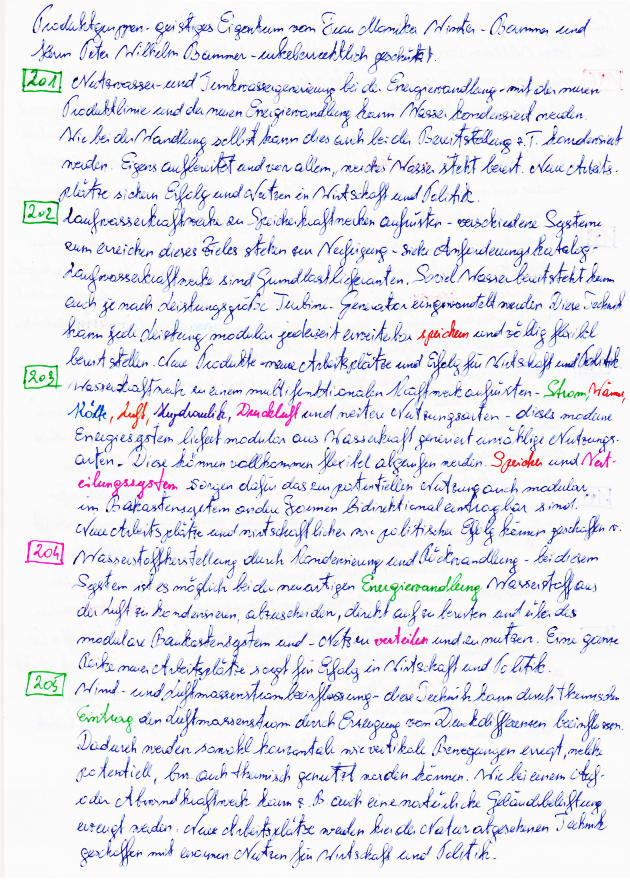 Produktgruppen - geistiges Eigentum von Frau Monika Winter - Bammer und
Herrn Peter Wilhelm Bammer - urheberrechtlich geschützt.
201 Nutzwasser- und Trinkwassergenerierung bei der Energiewandlung - mit der neuen
Produktlinie und der neuen Energiewandlung kann Wasser kondensiert werden.
Wie bei der Wandlung selbst kann dies auch bei der Bereitstellung z.T. kondensiert
werden. Eigens aufbereitet und vor allem, weiches Wasser steht bereit. Neue Arbeits-
plätze sichern Erfolg und Nutzen in Wirtschaft und Politik.
202 Laufwasserkraftwerke zu Speicherkraftwerken aufrüsten - verschiedene Systeme
zum erreichen dieses Zieles stehen zur Verfügung - siehe Anforderungskatalog -
Laufwasserkraftwerke sind Grundlastlieferanten. Soviel Wasser bereitsteht kann
auch je nach Leistungsgröße Turbine - Generator eingewandelt werden. Diese Technik
kann jede Leistung modular jederzeit erweiterbar speichern und völlig flexibel
bereitstellen. Neue Produkte - neue Arbeitsplätze und Erfolg für Wirtschaft und Politik.
203 Wasserkraftwerk zu einem multifunktionalen Kraftwerk aufrüsten - Strom, Wärme,
Kälte, Luft, Hydraulik, Druckluft und weitere Nutzungsarten - dieses moderne
Energiesystem liefert modular aus Wasserkraft generiert unzählige Nutzungs-
arten - Diese können vollkommen flexibel abgerufen werden. Speicher und Vert-
eilungssystem sorgen dafür das zur potentiellen Nutzung auch modular
im Baukastensystem andere Formen bidirektional eintragbar sind.
Neue Arbeitsplätze und wirtschaftlicher wie politischer Erfolg können geschaffen w.
204 Wasserstoffherstellung durch Kondensierung und Rückwandlung - bei diesem
System ist es möglich bei der neuartigen Energiewandlung Wasserstoff aus
der Luft zu kondensieren, abzuscheiden, direkt aufzubereiten und über das
modulare Baukastensystem und - Netz zu verteilen und zu nutzen. Eine ganze
Reihe neuer Arbeitsplätze sorgt für Erfolg in Wirtschaft und Politik.
205 Wind- und Luftmassenstrombeeinflussung - diese Technik kann durch thermischen
Eintrag den Luftmassenstrom durch Erzeugung von Druckdifferenzen beeinflussen.
Dadurch werden sowohl horizontale wie vertikale Bewegungen erzeugt, welche
potentiell, bzw. auch thermisch genutzt werden können. Wie bei einem Auf-
oder Abwindkraftwerk kann z. B auch eine natürliche Geländebelüftung
erzeugt werden. Neue Arbeitsplätze werden hier der Natur abgesehenen Technik
geschaffen mit enormen Nutzen für Wirtschaft und Politik.